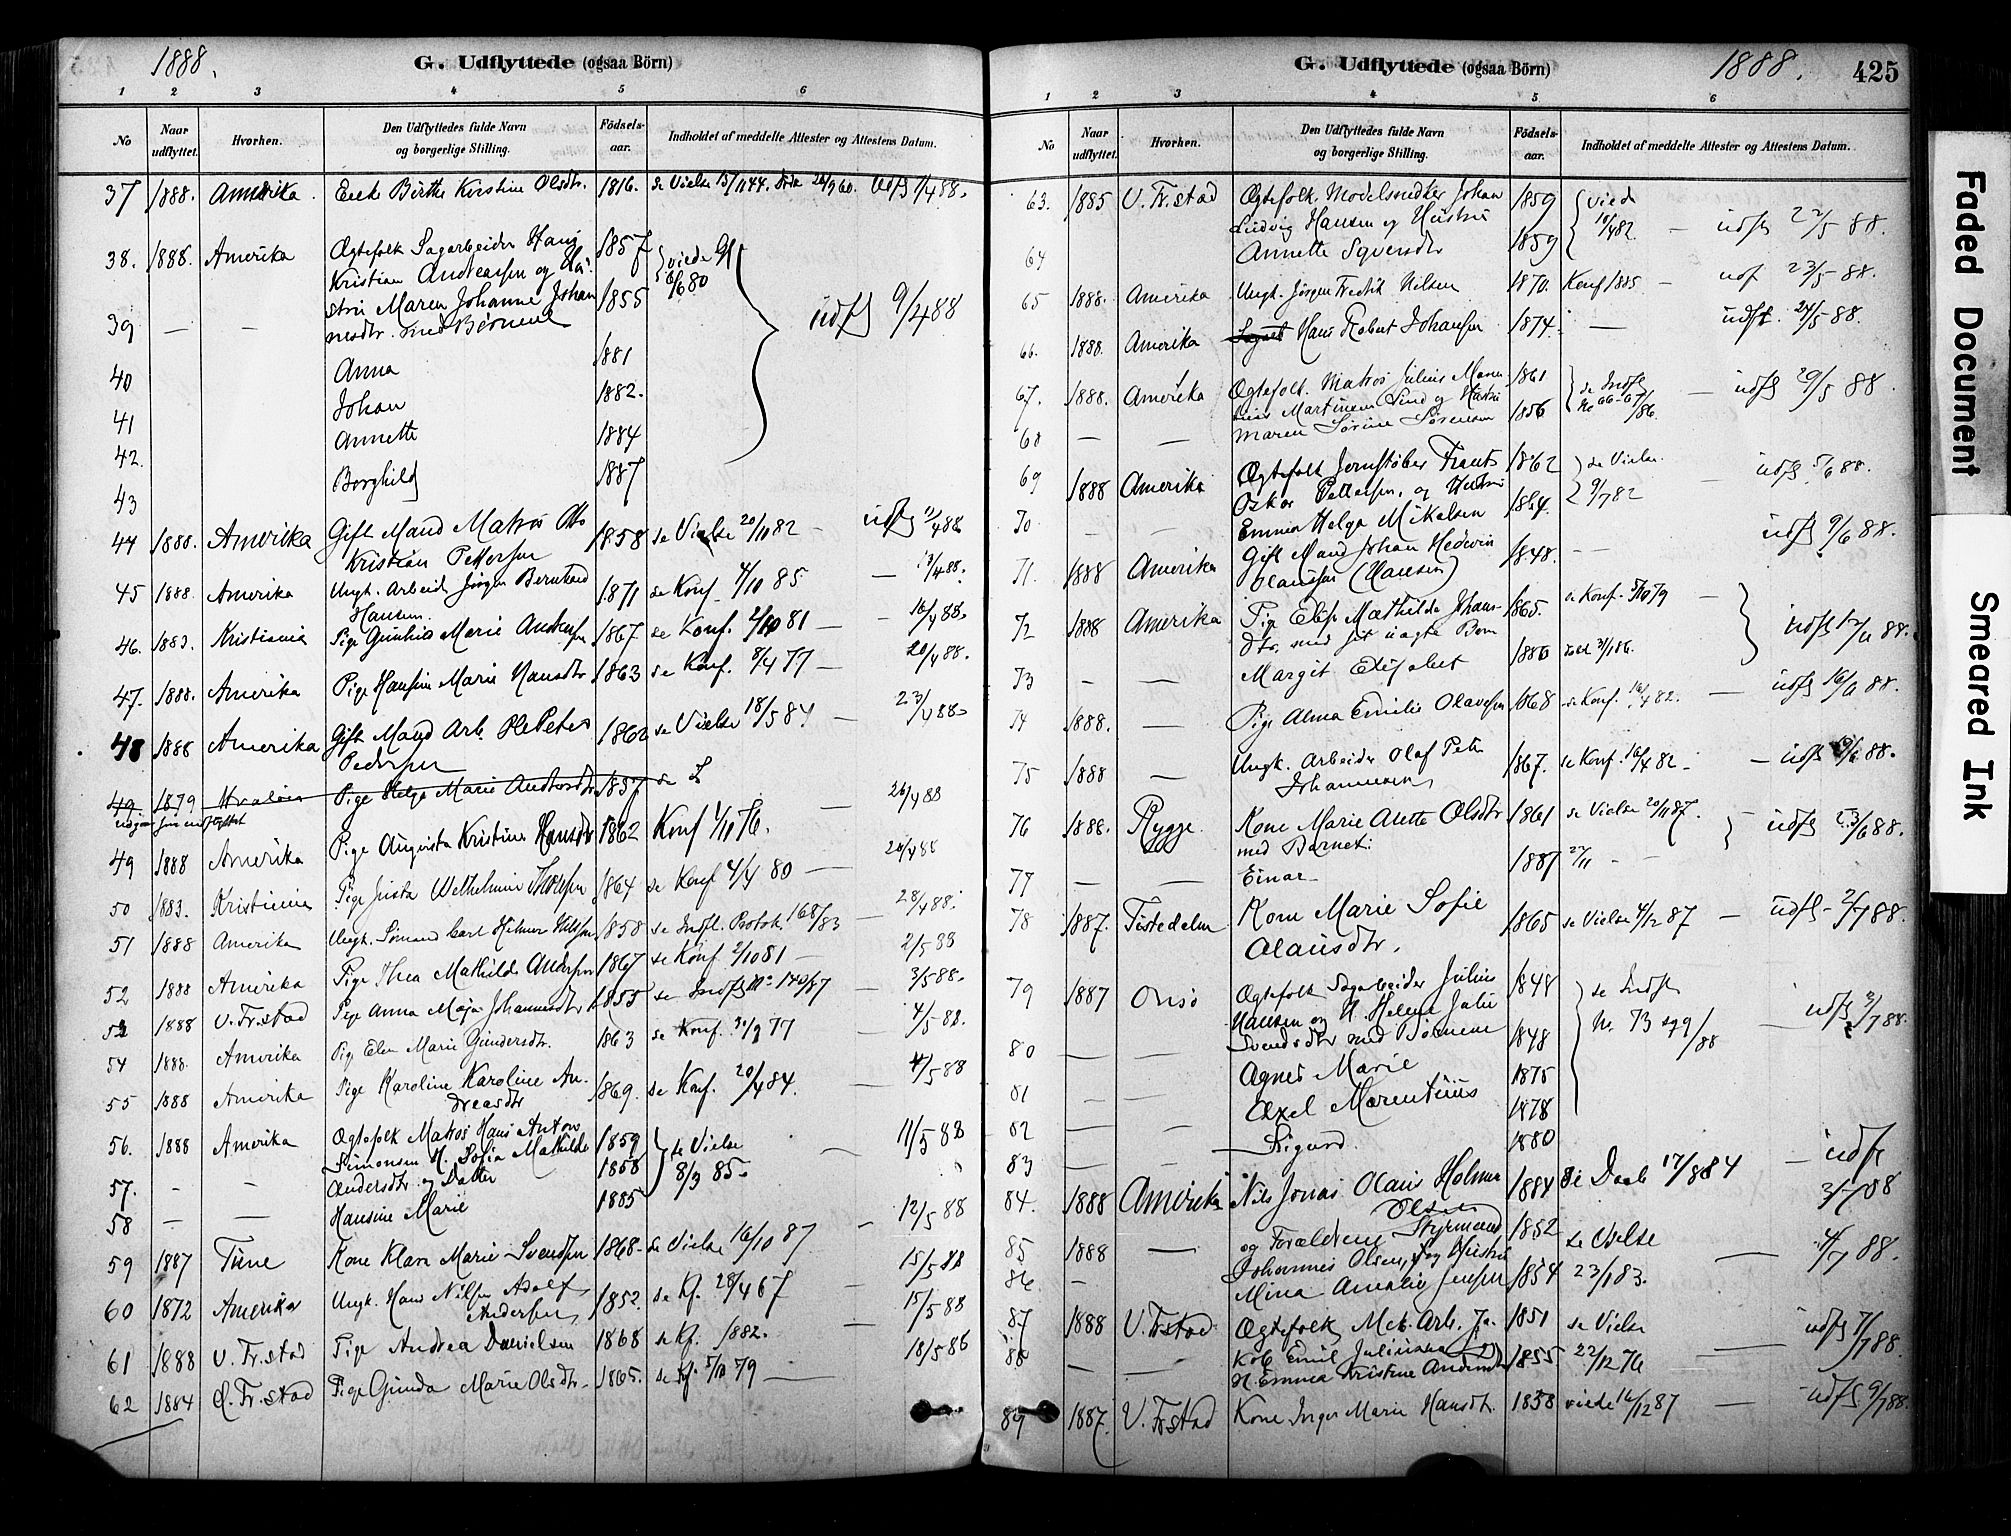 1888.
G. Udflyttede (ogsaa Börn)
1 2 3 4 5 6
No
Naar udflyttet.
Hvorhen.
Den Udflyttedes fulde Navn og borgerlige Stilling.
Födsels-aar.
Indholdet af meddelte Attester og Attestens Datum.
37 1888. Amerika. Enke Birthe Kirstine Olsdtr. 1816. se Vielse 13/11 44. Udfl 7/4 88.
38. 1888. Amerika Ægtefolk Sagarbeider Hans 1857 viede
Kristian Andreassen og Hu- 6/6 80
39 — — strü Maren Johanne Johan 1855 udfl 9/4 88
nesdtr. med Börnene
40 Anna 1881
41 Johan 1882.
42. Annette 1884
43 Borghild 1887
44 1888. Amerika Gift Mand Matros Otto 1858 se Vielse 20/11 82 — udfl 11/4 88
Kristian Pettersen
45 1888. Amerika Ungk. Arbeid. Jörgen Bernhard 1871 se Konf. 4/10 85 — 13/4 88.
Hansen.
46. 1883. Kristiania Pige Gunhild Marie Andersen 1867 se Konf. 2/10 81 — 16/4 88.
47. 1888. Amerika Pige Hansine Marie Hansdtr 1863 se Konf. 8/4 77 — 20/4 88.
48 1888 Amerika Gift Mand Arb. Ole Peter 1862 se Vielse 18/5 84 — 23/4 88.
Pedersen
49 1879 Hvaløer Pige Helga Marie Andersdtr 1857 se
49 1888 Amerika Pige Augusta Kristine Hansdtr 1862 Konf 1/11 76. — 26/4 88
50 1883. Kristiania Pige Josta Wilhelmine Thoresen 1864 se Konf 4/4 80 — 28/4 88
51 1888 Amerika Ungk. Sømand Carl Hilmer Nilssen 1858 se Indfl. Protok. 168/83 — 28/4 88.
52 1888 Amerika Pige Thea Mathilde Andersen 1867 se Konf 2/10 81 — 2/5 88
53 1888 V. Fr.stad Pige Anna Maja Johannesdtr 1855 se Indfl No 140/87 — 3/5 88.
54 1888. Amerika Pige Elen Marie Gundersdtr. 1863 se Konf. 30/9 77 — 4/5 88.
55 1888 Amerika Pige Karoline Karoline An- 1869. se Konf. 20/4 84. — 4/5 88
dreasdtr
56. 1888 Amerika Ægtefolk Matros Hans Anton 1859 se Vielse — 11/5 88
Simonsen H. Sofia Mathilde 1858 8/3 85.
57. - - Andersdtr og Datter
58 — — Hansine Marie 1885
59 1887 Tune Kone Klara Marie Svendsen 1868. se Vielse 16/10 87 — 12/5 88
60 1872 Amerika Ungk. Hans Nilsen Adolf 1852. se Kf. 28/4 67 — 15/5 88
Andersen
61 1888 V. Fr.stad Pige Andrea Danielsen 1868 se Kf. 1882. — 15/5 88
62 1884 Ö. Fr.stad Pige Gunda Marie Olsdtr. 1865. se Kf. 5/10 79 — 18/5 88
G. Udflyttede (ogsaa Börn)
1888.
425
1 2 3 4 5 6
No
Naar udflyttet.
Hvorhen.
Den Udflyttedes fulde Navn og borgerlige Stilling.
Födsels-aar.
Indholdet af meddelte Attester og Attestens Datum.
63. 1885 V. Fr.stad Ægtefolk Modelsnedker Johan 1859 viede
Ludvig Hansen og Hustrü 10/4 82 — udfl 22/5 88.
64 Annette Syversdtr 1859
65 1888. Amerika Ungk. Jörgen Fredrik Nilsen 1870. Konf 1885 — udf 23/5 88.
66. 1888. Amerika Hans Robert Johansen 1874. — udfl. 24/5 88.
67. 1888. Amerika Ægtefolk. Matros Julius Mari- 1861 se Indfl — udfl 29/5 88
nius Martinsen Lund og Hustrü No 66-67/86.
68 — — Maren Sørine Sørensen 1856
69 1888 Amerika Ægtefolk Jernstøber Frants 1862 se Vielse — udfl 5/6 88.
Oskar Pettersen, og Hustrü 9/7 82
70 — — Emma Helga Mikelsen 1864.
71. 1888 Amerika Gift Mand Johan Hedevin 1848. — udfl 9/6 88.
Olaussen (Hansen)
72 1888 Amerika Pige Elise Mathilde Johans- 1865. se Konf. 5/10 79 — udfl
dtr. med sit uægte Barn
73 — — Margit Elisabet 1886
74 1888. — Pige Alma Emilie Olavesen 1868 se Konf. 16/4 82. — udfl 16/6 88.
75 1888 — Ungk. Arbeider Olaf Peter 1867. se Konf. 16/4 82 — udfl /6 88.
Johannesen
76 1888. Rygge. Kone Marie Alette Olsdtr 1861 se Vielse 20/11 87. — udfl 23/6 88.
med Barnet:
77 — — Einar 1887 27/11 —
78 1887. Tistedalen Kone Marie Sofie 1865 se Vielse 4/12 87 — udfl. 2/7 88.
Olausdtr.
79 1887 Onsö Ægtefolk Sagarbeider Julius 1848 se Indfl
Hansen og H. Helene Julie No. 73 og 9/88 — udfl 3/7 88.
80 — — Svendsdtr med Börnene 1848
81 — — Agnes Marie 1875
82 — — Axel Marentius 1878
83 — — Sigurd. 1880
84. 1888 Amerika Nils Jonas Olaus Holmer 1884 se Daab 17/8 84 — udfl
Olsen 3/7 88
85 1888 — og Forældrene Styrmand 1852 se Vielse — 4/7 88.
Johannes Olsen, og Hustrü
86 — Mina Amalie Jensen 1854 23/1 83.
87 1888 V. Frstad Ægtefolk Mek. Arb. Ja- 1851 se Vielse — udfl 7/7 88.
88 — — kob Emil Juliussen 22/12 76
H. Emma Kristine Andersdtr 1855
89 1887. V. Frstad Kone Inger Marie Hansdtr. 1858 viede /12 87 — udfl 9/7 88.
Faded Document
Smeared Ink